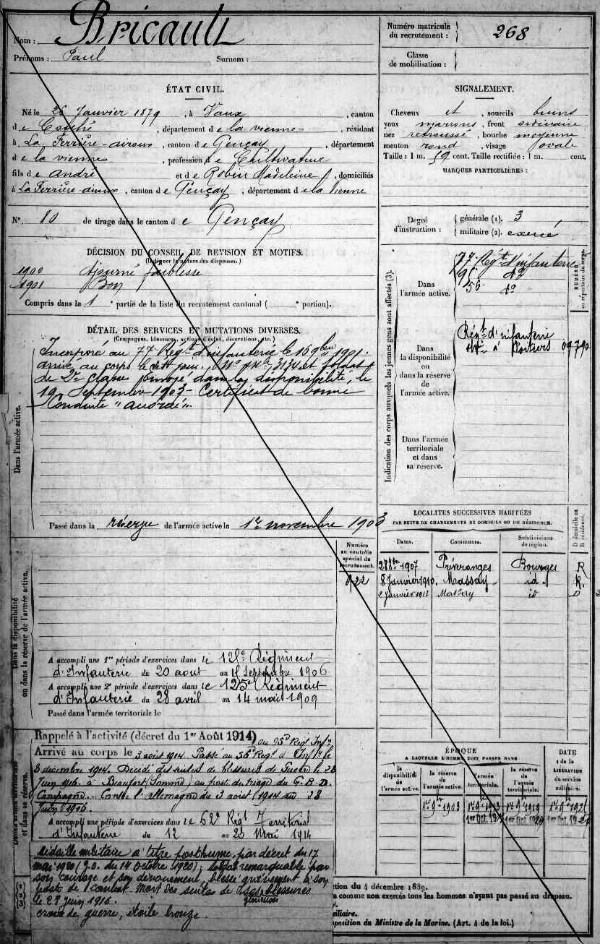 Nom : Bricault
Prénoms : Paul Surnom :
Numéro matricule
du recrutement : 268
Classe
de mobilisation :
ÉTAT CIVIL.
Né le 26 Janvier 1879, à Vaux, canton
de Couhé, département de la Vienne, résidant
à La Ferrière-airoux, canton de Gençay, département
de la Vienne, profession de Cultivateur
fils de André et de Robin Madeleine, domiciliés
à La Ferrière-airoux, canton de Gençay, département de la Vienne
N° de tirage dans le canton de Gençay
SIGNALEMENT.
Cheveux et sourcils bruns
yeux marrons, front ordinaire
nez retroussé, bouche moyenne
menton rond, visage ovale
Taille : 1 m. cent. Taille rectifiée : 1 m. cent.
MARQUES PARTICULIÈRES :
Degré
d'instruction :
générale (1). 3
militaire (2). exercé
DÉCISION DU CONSEIL DE RÉVISION ET MOTIFS.
1900 Ajourné faiblesse
1901 Bon
Compris dans la 1e partie de la liste du recrutement cantonal ( portion).
DÉTAIL DES SERVICES ET MUTATIONS DIVERSES.
(Campagnes, blessures, actions d'éclat, décorations, etc.)
Incorporé au 77e Régt d'infanterie le 16 9bre 1901.
arrivé au corps le dit jour, et soldat
de 2e classe dans la disponibilité, le
19 Septembre 1903. Certificat de bonne
Conduite "accordé".
Dans l'armée active.
Passé dans la réserve de l'armée active le 1er novembre 1903
Indication des corps auxquels les jeunes gens sont affectés (3).
Dans
l'armée active.
77e Régt d'infanterie
Dans
la disponibilité
ou dans la réserve
de l'armée
active.
Régt d'infanterie
Poitiers
Dans l'armée
territoriale
et dans
sa réserve.
LOCALITÉS SUCCESSIVES HABITÉES
PAR SUITE DE CHANGEMENTS DE DOMICILE OU DE RÉSIDENCE.
Dates. Communes. Subdivisions
de région. D domicile ou
R résidence.
1907 Préveranges Bourges R
8 Janvier 1910 Massay id. R.
2 Janvier 1912 Massay id D
Numéro
au contrôle
spécial du
recrutement.
Dans la disponibilité
ou dans la réserve de l'armée active.
A accompli une 1re période d'exercices dans le 125e Régiment
d'Infanterie du 20 août au Septembre 1906
A accompli une 2e période d'exercices dans le 125e Régiment
d'Infanterie du 28 avril au 14 mai 1909
Passé dans l'armée territoriale le
Rappelé à l'activité (décret du 1er Août 1914) au 95e Régt Infie
Arrivé au corps le 3 août 1914. Passé au 56e Régt d'Infie le
8 décembre 1914. Décédé des suites de blessures de guerre le 28
Juin 1916 à Beaufort (Somme)
Campagne : Contre l'Allemagne du 3 août 1914 au 28
Juin 1916
A accompli une période d'exercices dans le 62e Régt Territorial
d'Infanterie du 12 au 20 Mai 1914
Médaille militaire à titre posthume, par décret du 17
mai 1920 (J.O. du 14 Octobre 1920), soldat remarquable par
son courage et son dévouement, blessé grièvement à son
poste de combat. Mort des suites de ses blessures
le 28 Juin 1916.
croix de guerre, étoile bronze.
ÉPOQUE
À LAQUELLE L'HOMME DOIT PASSER DANS
la
disponibilité
de l'armée
active.
la réserve
de
l'armée
active.
l'armée
territoriale.
la réserve
de
l'armée
territoriale.
DATE
DE LA
LIBÉRATION
du service
militaire.
tion du 4 décembre 1889.
comme non exercés tous les hommes n'ayant pas passé au drapeau.
iliaire.
isposition du Ministre de la Marine. (Art. 4 de la loi.)